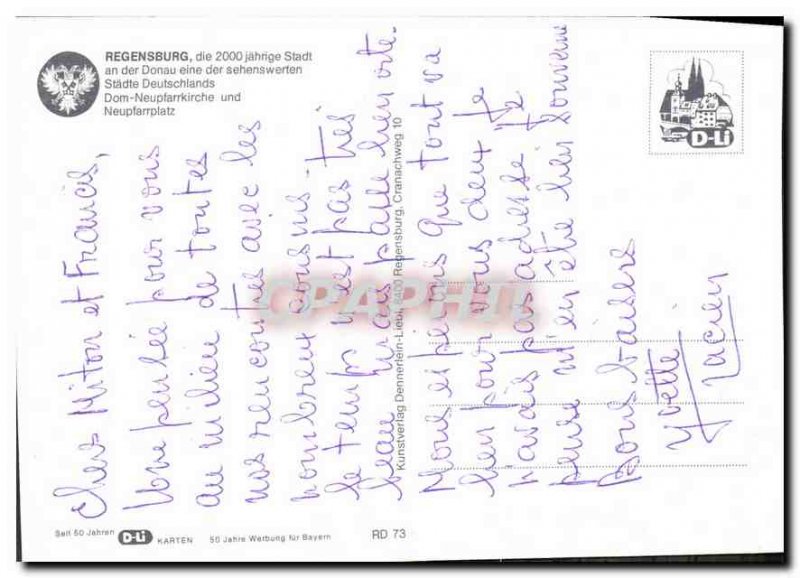 REGENSBURG, die 2000 jährige Stadt
an der Donau eine der sehenswerten
Städte Deutschlands
Dom-Neupfarrkirche und
Neupfarrplatz
D-Li
Chers Miton et Francis,
Une pensée pour vous
au milieu de toutes
nos rencontres avec les
nombreux cousins.
le temps n'est pas très
beau mais passe bien vite.
Kunstverlag Dennerlein-Liebl, 8400 Regensburg, Cranachweg 10
Nous espérons que tout va
bien pour vous deux. Je
n'avais pas adresse je
pense m'en être bien souvenue
Bons baisers
Yvette
Lucien
CPAPHIL
Seit 50 Jahren D-Li KARTEN 50 Jahre Werbung für Bayern RD 73